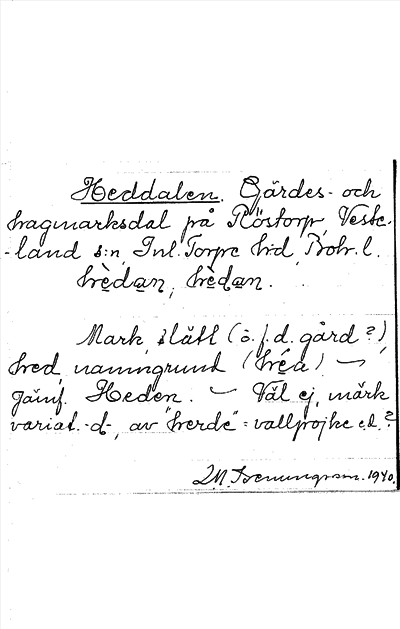 Heddalen. Gärdes- och
hagmarksdal på Röstorp, Veste-
-land s:n, Inl. Torpe h:d, Boh. l.
hèdan, hèdan.
Mark, slätt (ö. f. d. gård?),
hed, namngrund (hea) —
jämf. Heden. — Väl ej, märk
variat. -d-, av "herde" = vallpojke e.d.?
1940.